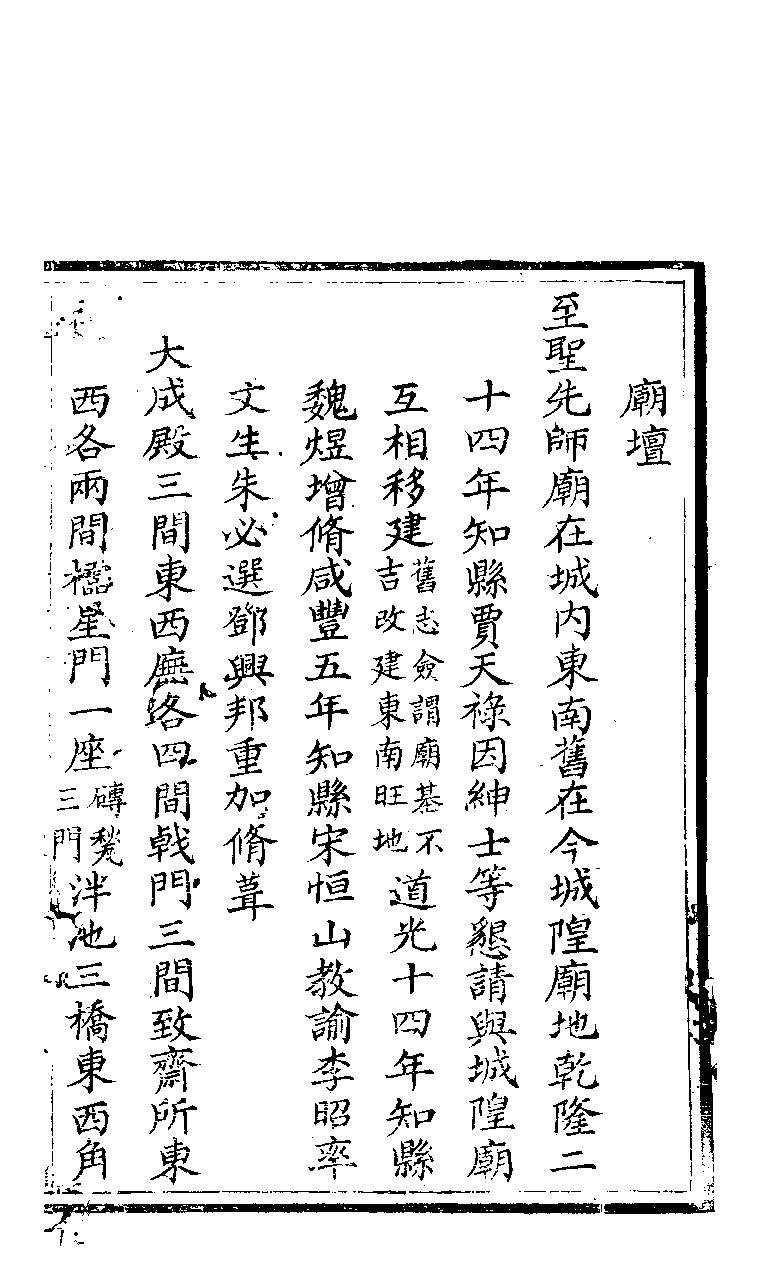 廟壇
至聖先師廟在城内東南舊在今城隍廟地乾隆二
十四年知縣賈天祿因紳士等懇請與城隍廟
互相移建舊志僉謂廟基不吉改建東南旺地道光十四年知縣
魏煜增脩咸豐五年知縣宋恒山教諭李昭率
文生朱必選鄧興邦重加脩葺
大成殿三間東西廡各四間戟門三間致齋所東
西各兩間櫺星門一座磚甃三門泮池三橋東西角